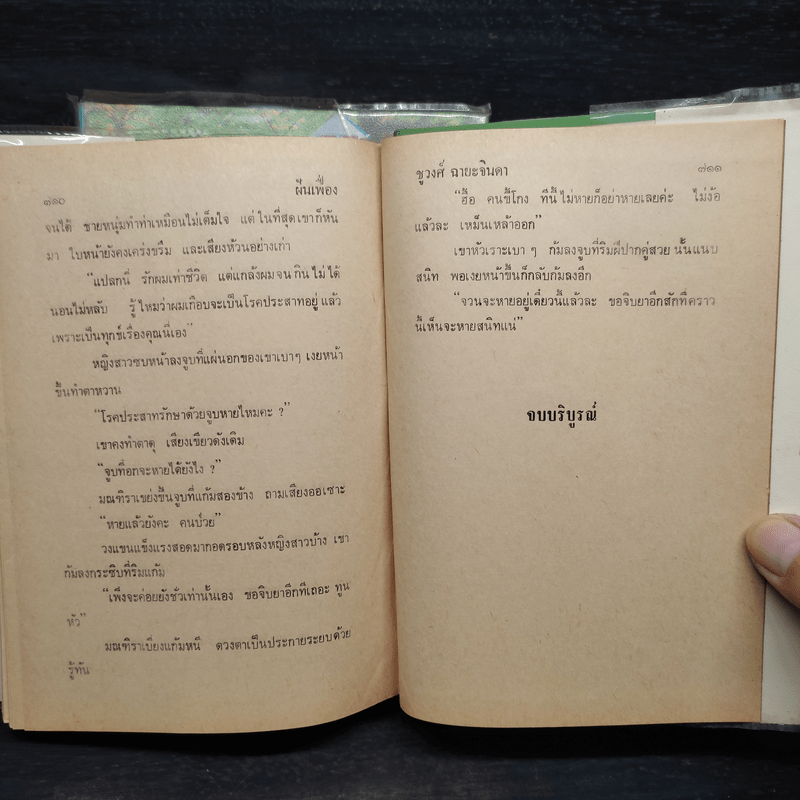 ๗๑๐ ฝันเฟื่อง
จนได้ ชายหนุ่มทำท่าเหมือนไม่เต็มใจ แต่ ในที่สุดเขาก็หัน
มา ใบหน้ายังคงเคร่งขรึม และเสียงห้วนอย่างเก่า
“แปลกนี่ รักผมเท่าชีวิต แต่แกล้งผมจน กินไม่ได้
นอนไม่หลับ รู้ ไหมว่าผมเกือบจะเป็นโรคประสาทอยู่ แล้ว
เพราะเป็นทุกข์เรื่องคุณนี่เอง”
หญิงสาวซบหน้าลงจูบที่แผ่นอกของเขาเบาๆ เงยหน้า
ขึ้นทำตาหวาน
“โรคประสาทรักษาด้วยจูบหายไหมคะ ?”
เขาคงทำตาดุ เสียงเขียวดังเดิม
“จูบที่อกจะหายได้ยังไง ?”
มณฑิราเขย่งขึ้นจูบที่แก้มสองข้าง ถามเสียงออเซาะ
“หายแล้วยังคะ คนป่วย”
วงแขนแข็งแรงสอดมากอดรอบหลังหญิงสาวบ้าง เขา
ก้มลงกระซิบที่ริมแก้ม
“เพิ่งจะค่อยยังชั่วเท่านั้นเอง ขอจิบยาอีกทีเถอะ ทูน
หัว”
มณฑิราเบี่ยงแก้มหนี ดวงตาเป็นประกายระยบด้วย
รู้ทัน
ชูวงศ์ ฉายะจินดา ๗๑๑
“ฮื้อ คนขี้โกง ทีนี้ ไม่หายก็อย่าหายเลยค่ะ ไม่ง้อ
แล้วละ เหม็นเหล้าออก”
เขาหัวเราะเบา ๆ ก้มลงจูบที่ริมฝีปากคู่สวย นั้นแนบ
สนิท พอเงยหน้าขึ้นก็กลับก้มลงอีก
“จวนจะหายอยู่เดี๋ยวนี้แล้วละ ขอจิบยาอีกสักทีคราว
นี้เห็นจะหายสนิทแน่”
จบบริบูรณ์